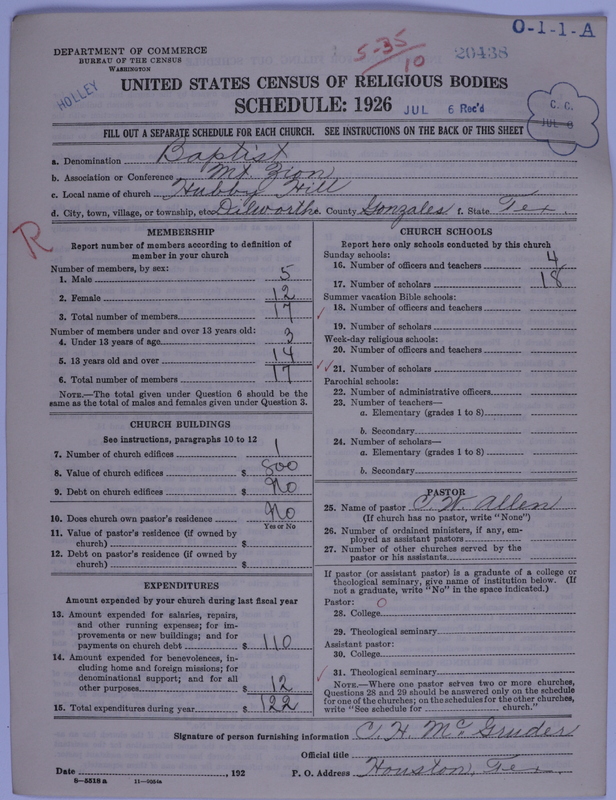 O-1-1-A
DEPARTMENT OF COMMERCE
BUREAU OF THE CENSUS
WASHINGTON
5-35
10
20438
HOLLEY
UNITED STATES CENSUS OF RELIGIOUS BODIES
SCHEDULE: 1926
JUL 6 Rec'd
C. C.
JUL 6
FILL OUT A SEPARATE SCHEDULE FOR EACH CHURCH. SEE INSTRUCTIONS ON THE BACK OF THIS SHEET
a. Denomination Baptist
b. Association or Conference Mt. Zion
c. Local name of church Hubby Hill
d. City, town, village, or township, etc. Dilworth e. County Gonzales f. State Tex.
R
MEMBERSHIP
Report number of members according to definition of
member in your church
Number of members, by sex:
1. Male 5
2. Female 12
3. Total number of members 17
Number of members under and over 13 years old:
4. Under 13 years of age 3
5. 13 years old and over 14
6. Total number of members 17
NOTE.—The total given under Question 6 should be
same as the total of males and females given under Question 3.
CHURCH BUILDINGS
See instructions, paragraphs 10 to 12
7. Number of church edifices 1
8. Value of church edifices $ 800
9. Debt on church edifices $ No
10. Does church own pastor's residence No
Yes or No
11. Value of pastor's residence (if owned by
church) $
12. Debt on pastor's residence (if owned by
church) $
EXPENDITURES
Amount expended by your church during last fiscal year
13. Amount expended for salaries, repairs,
and other running expenses; for im-
provements or new buildings; and for
payments on church debt $ 110
14. Amount expended for benevolences, in-
cluding home and foreign missions; for
denominational support; and for all
other purposes $ 12
15. Total expenditures during year $ 122
CHURCH SCHOOLS
Report here only schools conducted by this church
Sunday schools:
16. Number of officers and teachers 4
17. Number of scholars 18
Summer vacation Bible schools:
18. Number of officers and teachers
19. Number of scholars
Week-day religious schools:
20. Number of officers and teachers
21. Number of scholars
Parochial schools:
22. Number of administrative officers
23. Number of teachers—
a. Elementary (grades 1 to 8)
b. Secondary
24. Number of scholars—
a. Elementary (grades 1 to 8)
b. Secondary
PASTOR
25. Name of pastor C. W. Allen
(If church has no pastor, write "None")
26. Number of ordained ministers, if any, em-
ployed as assistant pastors
27. Number of other churches served by the
pastor or his assistants
If pastor (or assistant pastor) is a graduate of a college or
theological seminary, give name of institution below. (If
not a graduate, write "No" in the space indicated.)
Pastor: O
28. College
29. Theological seminary
Assistant pastor:
30. College
31. Theological seminary
NOTE.—Where one pastor serves two or more churches,
Questions 28 and 29 should be answered only on the schedule
for one of the churches; on the schedules for the other churches,
write "See schedule for church."
Signature of person furnishing information C. H. McGruder
Official title
Date , 192
P. O. Address Houston, Tex.
8—5518 a 11—9024a